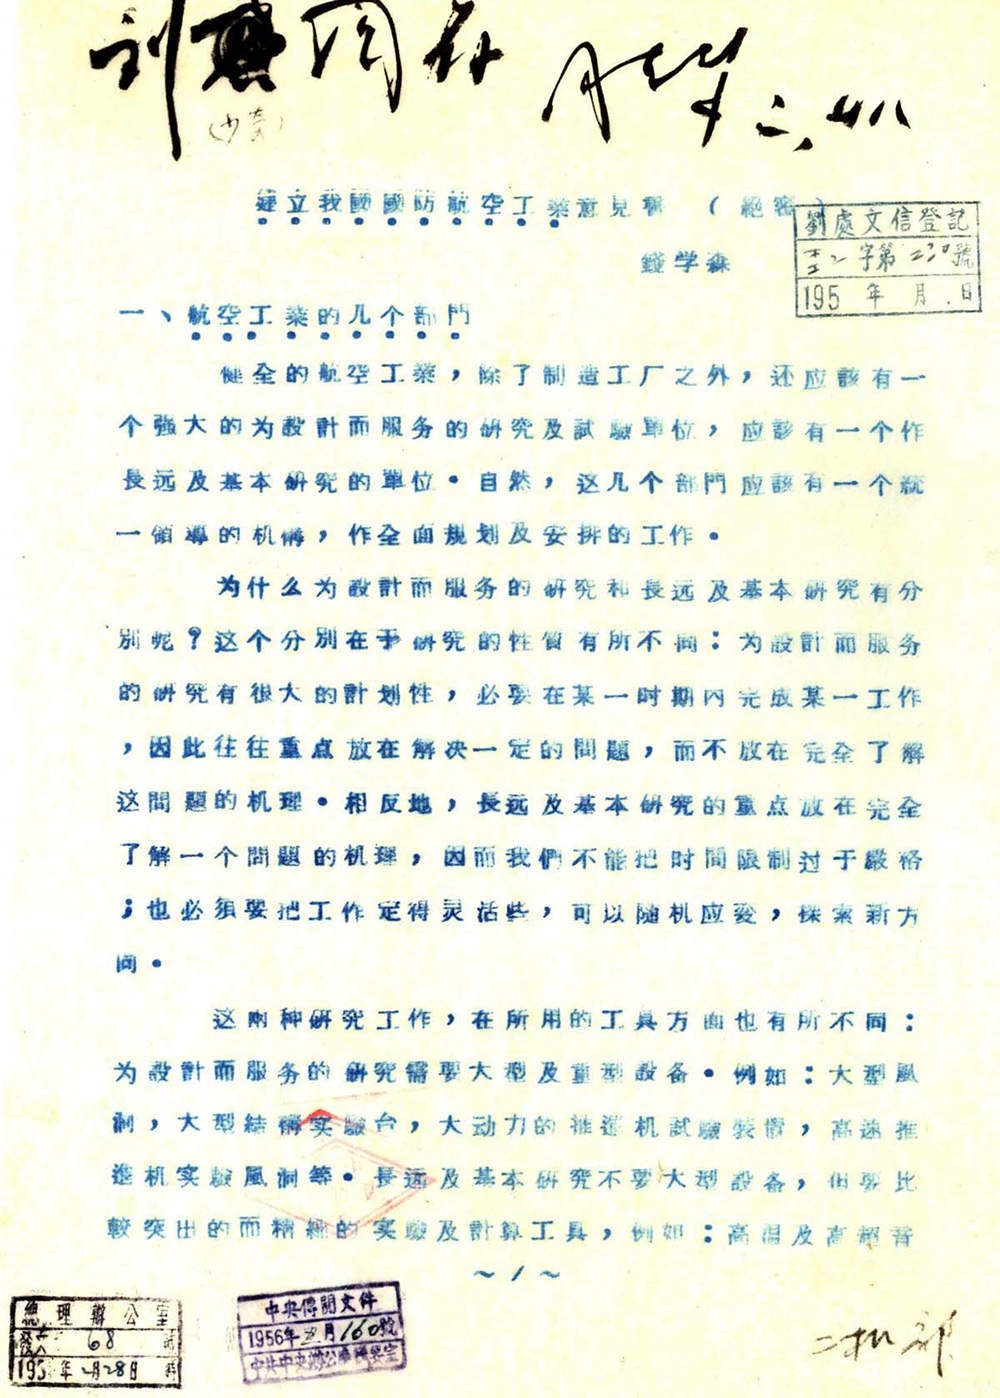 建立我國國防航空工業意見書（絕密）
劉處文信登記
字第 號
195 年 月 日
錢学森
一、航空工業的几个部門
健全的航空工業，除了制造工厂之外，还应該有一
个強大的为設計而服务的研究及試驗單位，应該有一个作
長远及基本研究的單位。自然，这几个部門应該有一个統
一領導的机構，作全面規划及安排的工作。
为什么为設計而服务的研究和長远及基本研究有分
別呢？这个分別在于研究的性質有所不同：为設計而服务
的研究有很大的計划性，必要在某一时期內完成某一工作
，因此往往重点放在解决一定的問題，而不放在完全了解
这問題的机理。相反地，長远及基本研究的重点放在完全
了解一个問題的机理，因而我們不能把时間限制过于嚴格
；也必須要把工作定得灵活些，可以随机应变，探索新方
向。
这兩种研究工作，在所用的工具方面也有所不同：
为設計而服务的研究需要大型及重型設备。例如：大型風
洞，大型結構实驗台，大动力的推進机試驗裝置，高速推
進机实驗風洞等。長远及基本研究不要大型設备，但要比
較突出的而精細的实驗及計算工具，例如：高温及高超音
～1～
總理辦公室
68 號
195 年2月28日
中央傳閱文件
1956年 月160號
中共中央辦公廳機要室
二机部